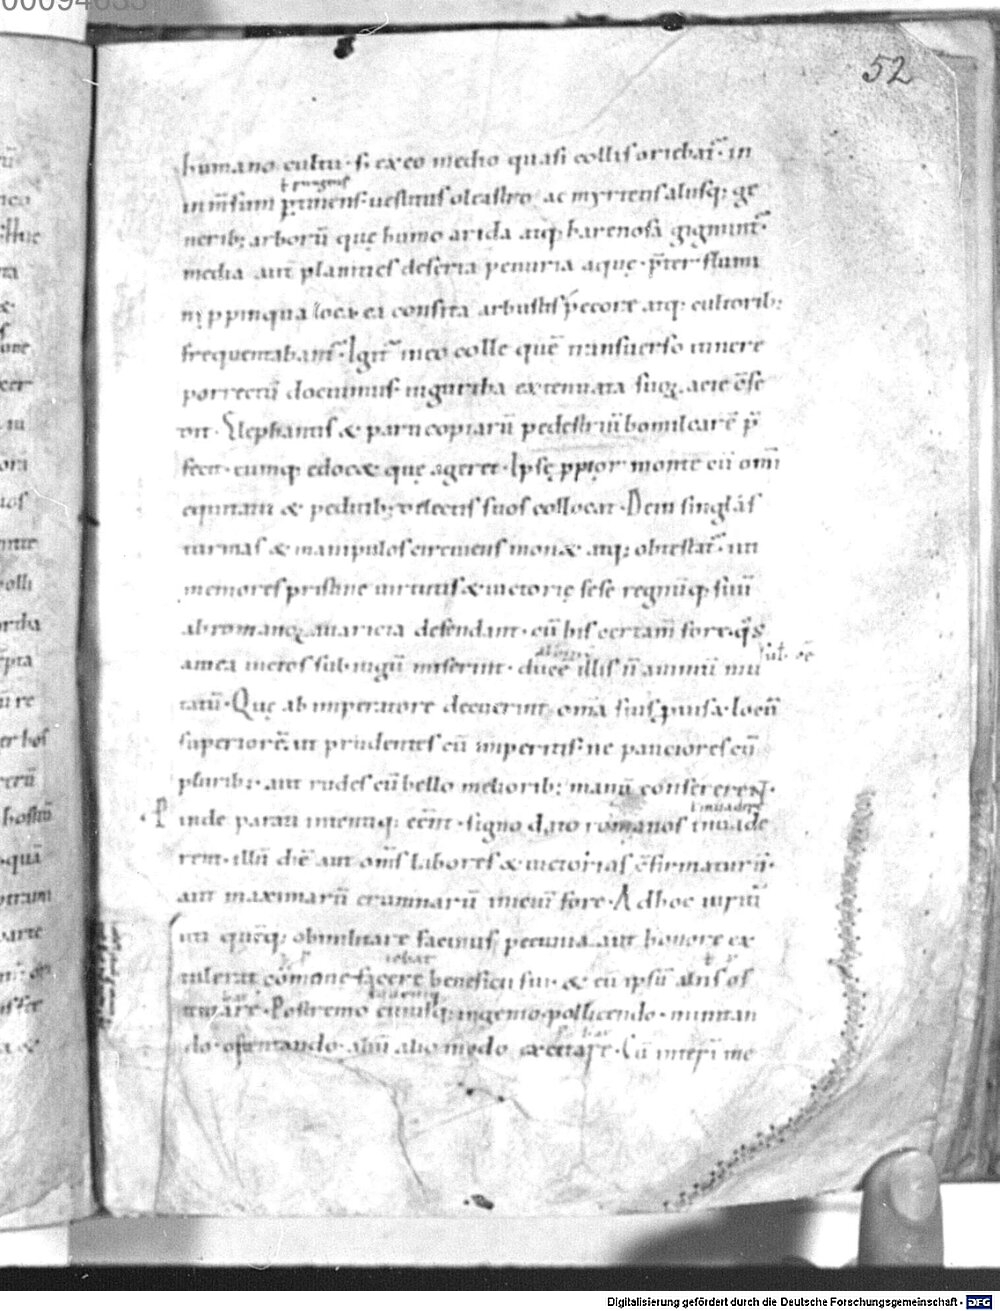 00094635
52
humano cultu· s; ex eo medio quasi collis oriebat̄· in
ł pertingens
inm̄sum ptinens· uestitus oleastro· ac myrtetis aliisq; ge
nerib; arborū quę humo arida atq; harenosa gignunt̄·
media aut̄ planities deserta penuria aque· p̄ter flumi
ni ppinqua loca ea consita arbustis pecore atq; cultorib;
frequentabant̄· Igit̄ in eo colle quē transuerso itinere
porrectū docuimus· iugurtha extenuata suoꝝ acie c̄se
dit· Elephantis & parti copiarū pedestriū bomilcarē p̄
fecit· eumq; edocet quę ageret· Ipse ppior monti cū omī
equitatu & peditib; delectis suos collocat· Dein singlas
turmas & manipulos circumiens monet atq; obtestat̄· uti
memores pristine uirtutis & uictorię sese regnūq; suū
ab romanoꝝ auaricia defendant· cū his certam̄ fore· q̄s
antea uictos sub iugū miserint· ducē illis ñ animū mu
tatū· Que ab imperatore decuerint omīa suis puisa· locū
superiorē· ut prudentes cū imperitis· ne pauciores cū
plurib;· aut rudes cū bello meliorib; manū consererent·
inde parati intentiq; eēnt· signo dato romanos inuade
rent· illū diē aut om̄s labores & uictorias c̄firmaturū·
aut maximarū erumnarū initiū fore· Ad hoc uiritī
uti quēq; ob militare facinus pecunia aut honore ex
tulerat cōmone facere beneficii sui· & eū ipsū aliis os
tentare· Postremo cuiusq; ingenio· pollicendo· minitan
do· obtestando· aliū alio modo excitare· Cū interī me
Digitalisierung gefördert durch die Deutsche Forschungsgemeinschaft - DFG